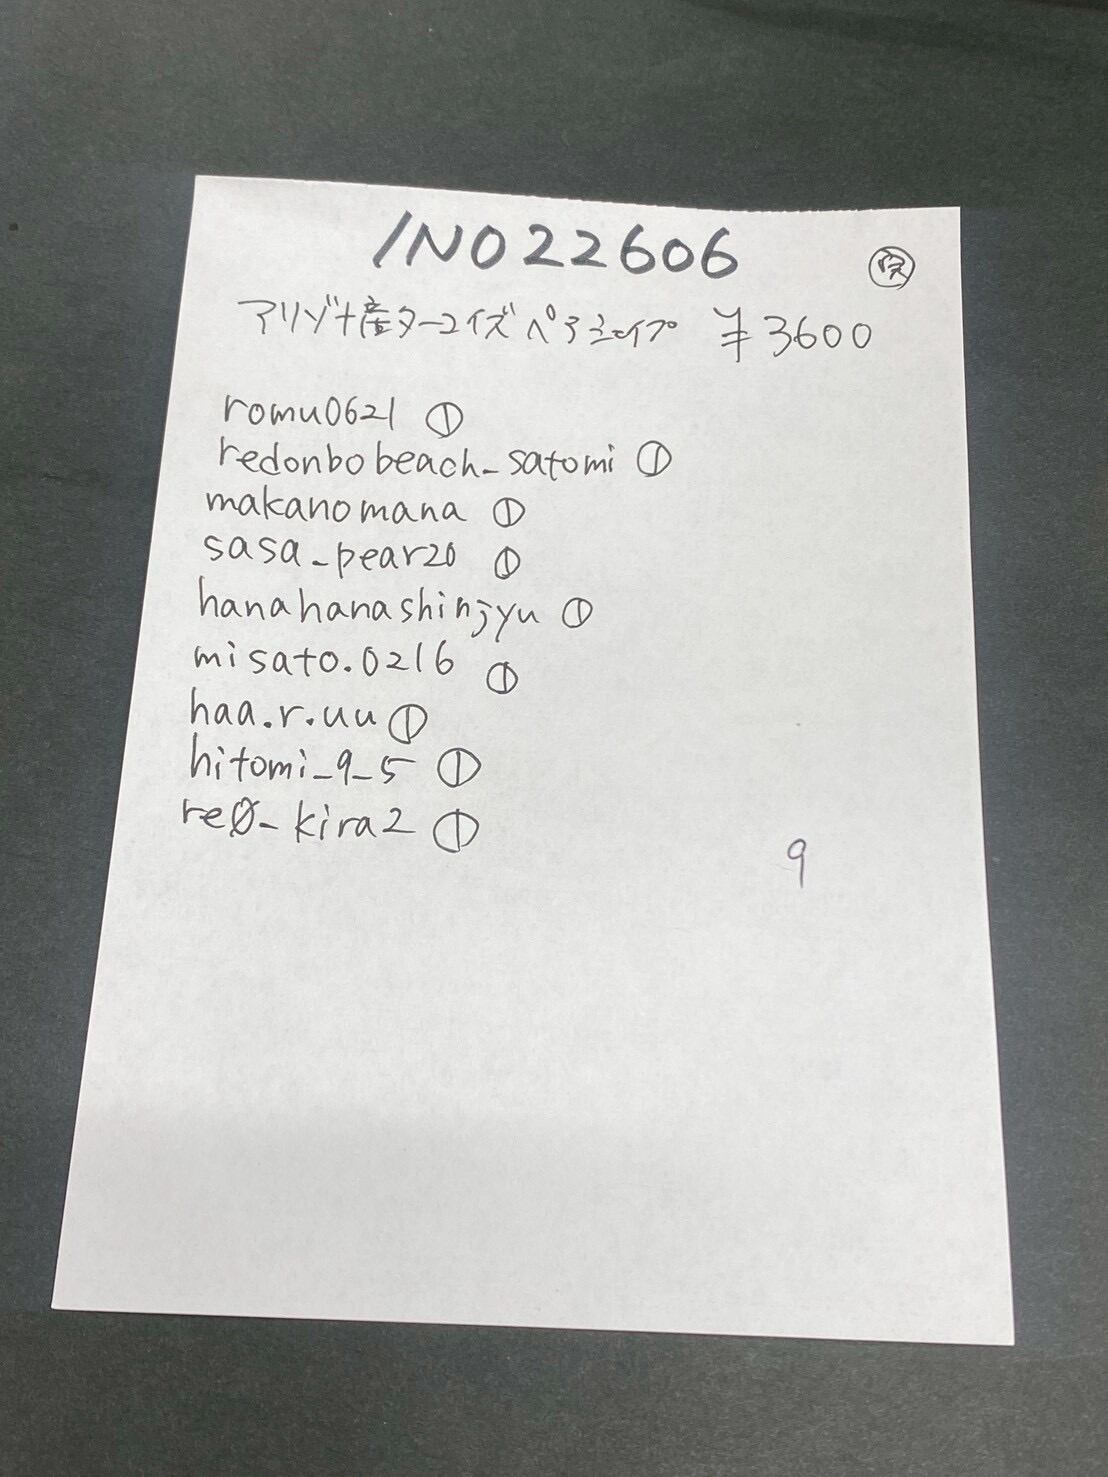 INO22606
アリゾナ産ターコイズペアシェイプ ¥3600
romu0621 ①
redonbobeach_satomi ①
makanomana ①
sasa_pear20 ①
hanahanashinjyu ①
misato.0216 ①
haa.r.uu ①
hitomi_9_5 ①
re0_kira2 ①
9